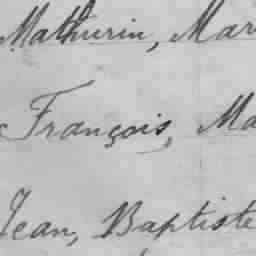 Mathurin, Mar
François, Ma
Jean, Baptiste